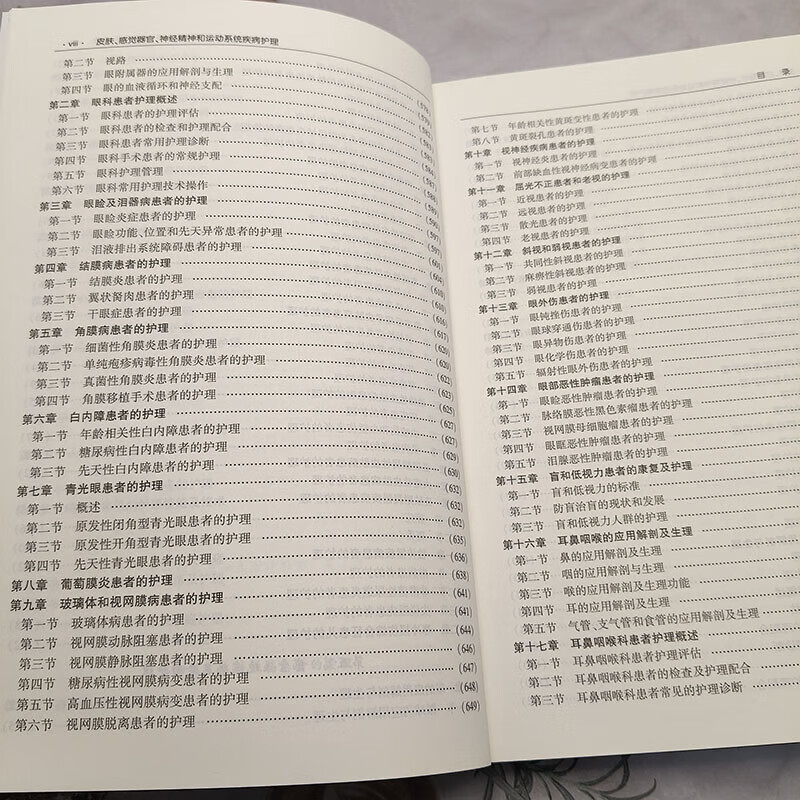 · viii · 皮肤、感觉器官、神经精神和运动系统疾病护理
第二节 视路
第三节 眼附属器的应用解剖与生理
第四节 眼的血液循环和神经支配
第二章 眼科患者护理概述
第一节 眼科患者的护理评估
第二节 眼科患者的检查和护理配合
第三节 眼科患者常用护理诊断
第四节 眼科手术患者的常规护理
第五节 眼科护理管理
第六节 眼科常用护理技术操作
第三章 眼睑及泪器病患者的护理
第一节 眼睑炎症患者的护理
第二节 眼睑功能、位置和先天异常患者的护理
第三节 泪液排出系统障碍患者的护理
第四章 结膜病患者的护理
第一节 结膜炎患者的护理
第二节 翼状胬肉患者的护理
第三节 干眼症患者的护理
第五章 角膜病患者的护理
第一节 细菌性角膜炎患者的护理 (620)
第二节 单纯疱疹病毒性角膜炎患者的护理
第三节 真菌性角膜炎患者的护理 (622)
第四节 角膜移植手术患者的护理 (623)
第六章 白内障患者的护理 (625)
第一节 年龄相关性白内障患者的护理 (627)
第二节 糖尿病性白内障患者的护理 (627)
第三节 先天性白内障患者的护理 (630)
第七章 青光眼患者的护理 (632)
第一节 概述 (632)
第二节 原发性闭角型青光眼患者的护理 (632)
第三节 原发性开角型青光眼患者的护理 (635)
第四节 先天性青光眼患者的护理 (636)
第八章 葡萄膜炎患者的护理 (638)
第九章 玻璃体和视网膜病患者的护理 (641)
第一节 玻璃体病患者的护理 (641)
第二节 视网膜动脉阻塞患者的护理 (644)
第三节 视网膜静脉阻塞患者的护理 (646)
第四节 糖尿病性视网膜病变患者的护理 (647)
第五节 高血压性视网膜病变患者的护理 (648)
第六节 视网膜脱离患者的护理 (649)
目 录
第七节 年龄相关性黄斑变性患者的护理
第八节 黄斑裂孔患者的护理
第十章 视神经疾病患者的护理
第一节 视神经炎患者的护理
第二节 前部缺血性视神经病变患者的护理
第十一章 屈光不正患者和老视的护理
第一节 近视患者的护理
第二节 远视患者的护理
第三节 散光患者的护理
第四节 老视患者的护理
第十二章 斜视和弱视患者的护理
第一节 共同性斜视患者的护理
第二节 麻痹性斜视患者的护理
第三节 弱视患者的护理
第十三章 眼外伤患者的护理
第一节 眼钝挫伤患者的护理
第二节 眼球穿通伤患者的护理
第三节 眼异物伤患者的护理
第四节 眼化学伤患者的护理
第五节 辐射性眼外伤患者的护理
第十四章 眼部恶性肿瘤患者的护理
第一节 眼睑恶性肿瘤患者的护理
第二节 脉络膜恶性黑色素瘤患者的护理
第三节 视网膜母细胞瘤患者的护理
第四节 眼眶恶性肿瘤患者的护理
第五节 泪腺恶性肿瘤患者的护理
第十五章 盲和低视力患者的康复及护理
第一节 盲和低视力的标准
第二节 防盲治盲的现状和发展
第三节 盲和低视力人群的护理
第十六章 耳鼻咽喉的应用解剖及生理
第一节 鼻的应用解剖及生理
第二节 咽的应用解剖与生理
第三节 喉的应用解剖及生理功能
第四节 耳的应用解剖及生理
第五节 气管、支气管和食管的应用解剖及生理
第十七章 耳鼻咽喉科患者护理概述
第一节 耳鼻咽喉科患者护理评估
第二节 耳鼻咽喉科患者的检查及护理配合
第三节 耳鼻咽喉科患者常见的护理诊断